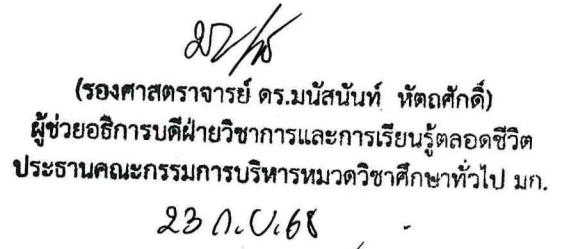 (รองศาสตราจารย์ ดร.มนัสนันท์ หัตถศักดิ์)
ผู้ช่วยอธิการบดีฝ่ายวิชาการและการเรียนรู้ตลอดชีวิต
ประธานคณะกรรมการบริหารหมวดวิชาศึกษาทั่วไป มก.
23 ก.ย.68